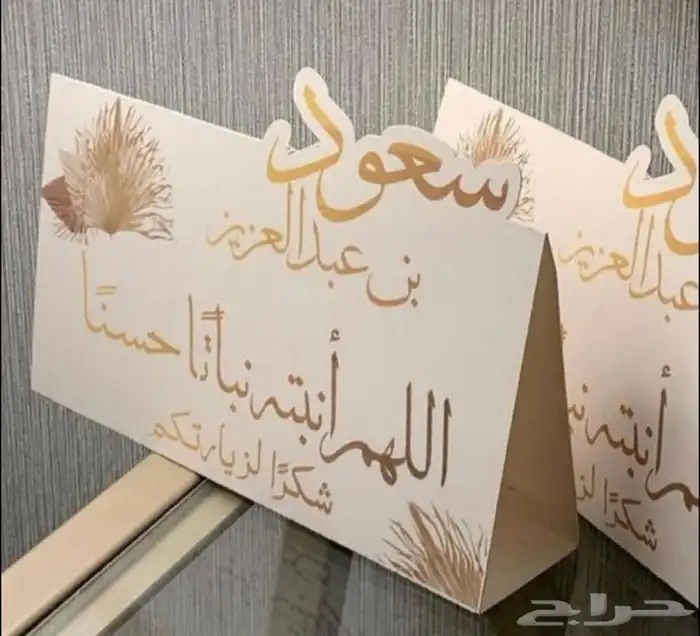 سعود
بن عبدالعزيز
اللهم أنبته نباتًا حسنًا
شكرًا لزيارتكم
د
عبدالعزيز
أنبته
شكرًا
حراج